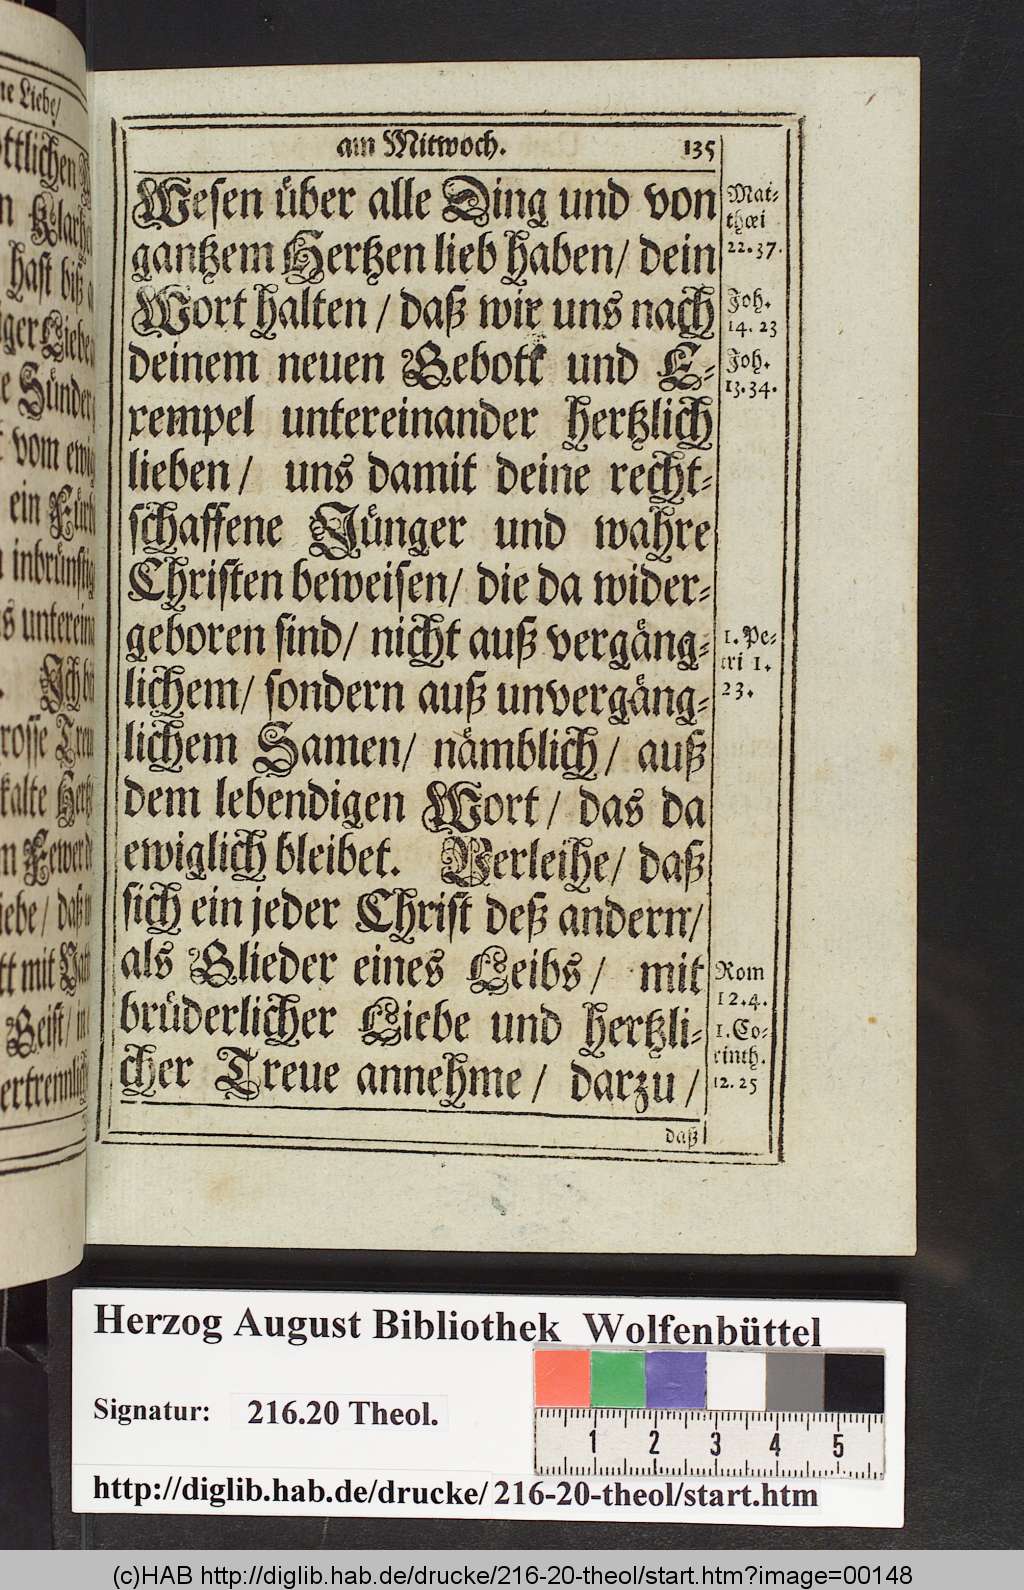 ne Liebe/
am Mittwoch. 135
Wesen über alle Ding und von
gantzem Hertzen lieb haben/ dein
Wort halten / daß wir uns nach
deinem neuen Gebott und E-
xempel untereinander hertzlich
lieben / uns damit deine recht-
schaffene Jünger und wahre
Christen beweisen/ die da wider-
geboren sind/ nicht auß vergäng-
lichem/ sondern auß unvergäng-
lichem Samen/ nämblich / auß
dem lebendigen Wort / das da
ewiglich bleibet. Verleihe/ daß
sich ein jeder Christ deß andern/
als Glieder eines Leibs / mit
brüderlicher Liebe und hertzli-
cher Treue annehme / darzu /
daß
Mat-
thæi
22.37.
Joh.
14. 23
Joh.
13.34.
1. Pe-
tri 1.
23.
Rom
12.4.
1. Co-
rinth.
12.25
Herzog August Bibliothek Wolfenbüttel
Signatur: 216.20 Theol.
1 2 3 4 5
http://diglib.hab.de/drucke/ 216-20-theol/start.htm
(c)HAB http://diglib.hab.de/drucke/216-20-theol/start.htm?image=00148